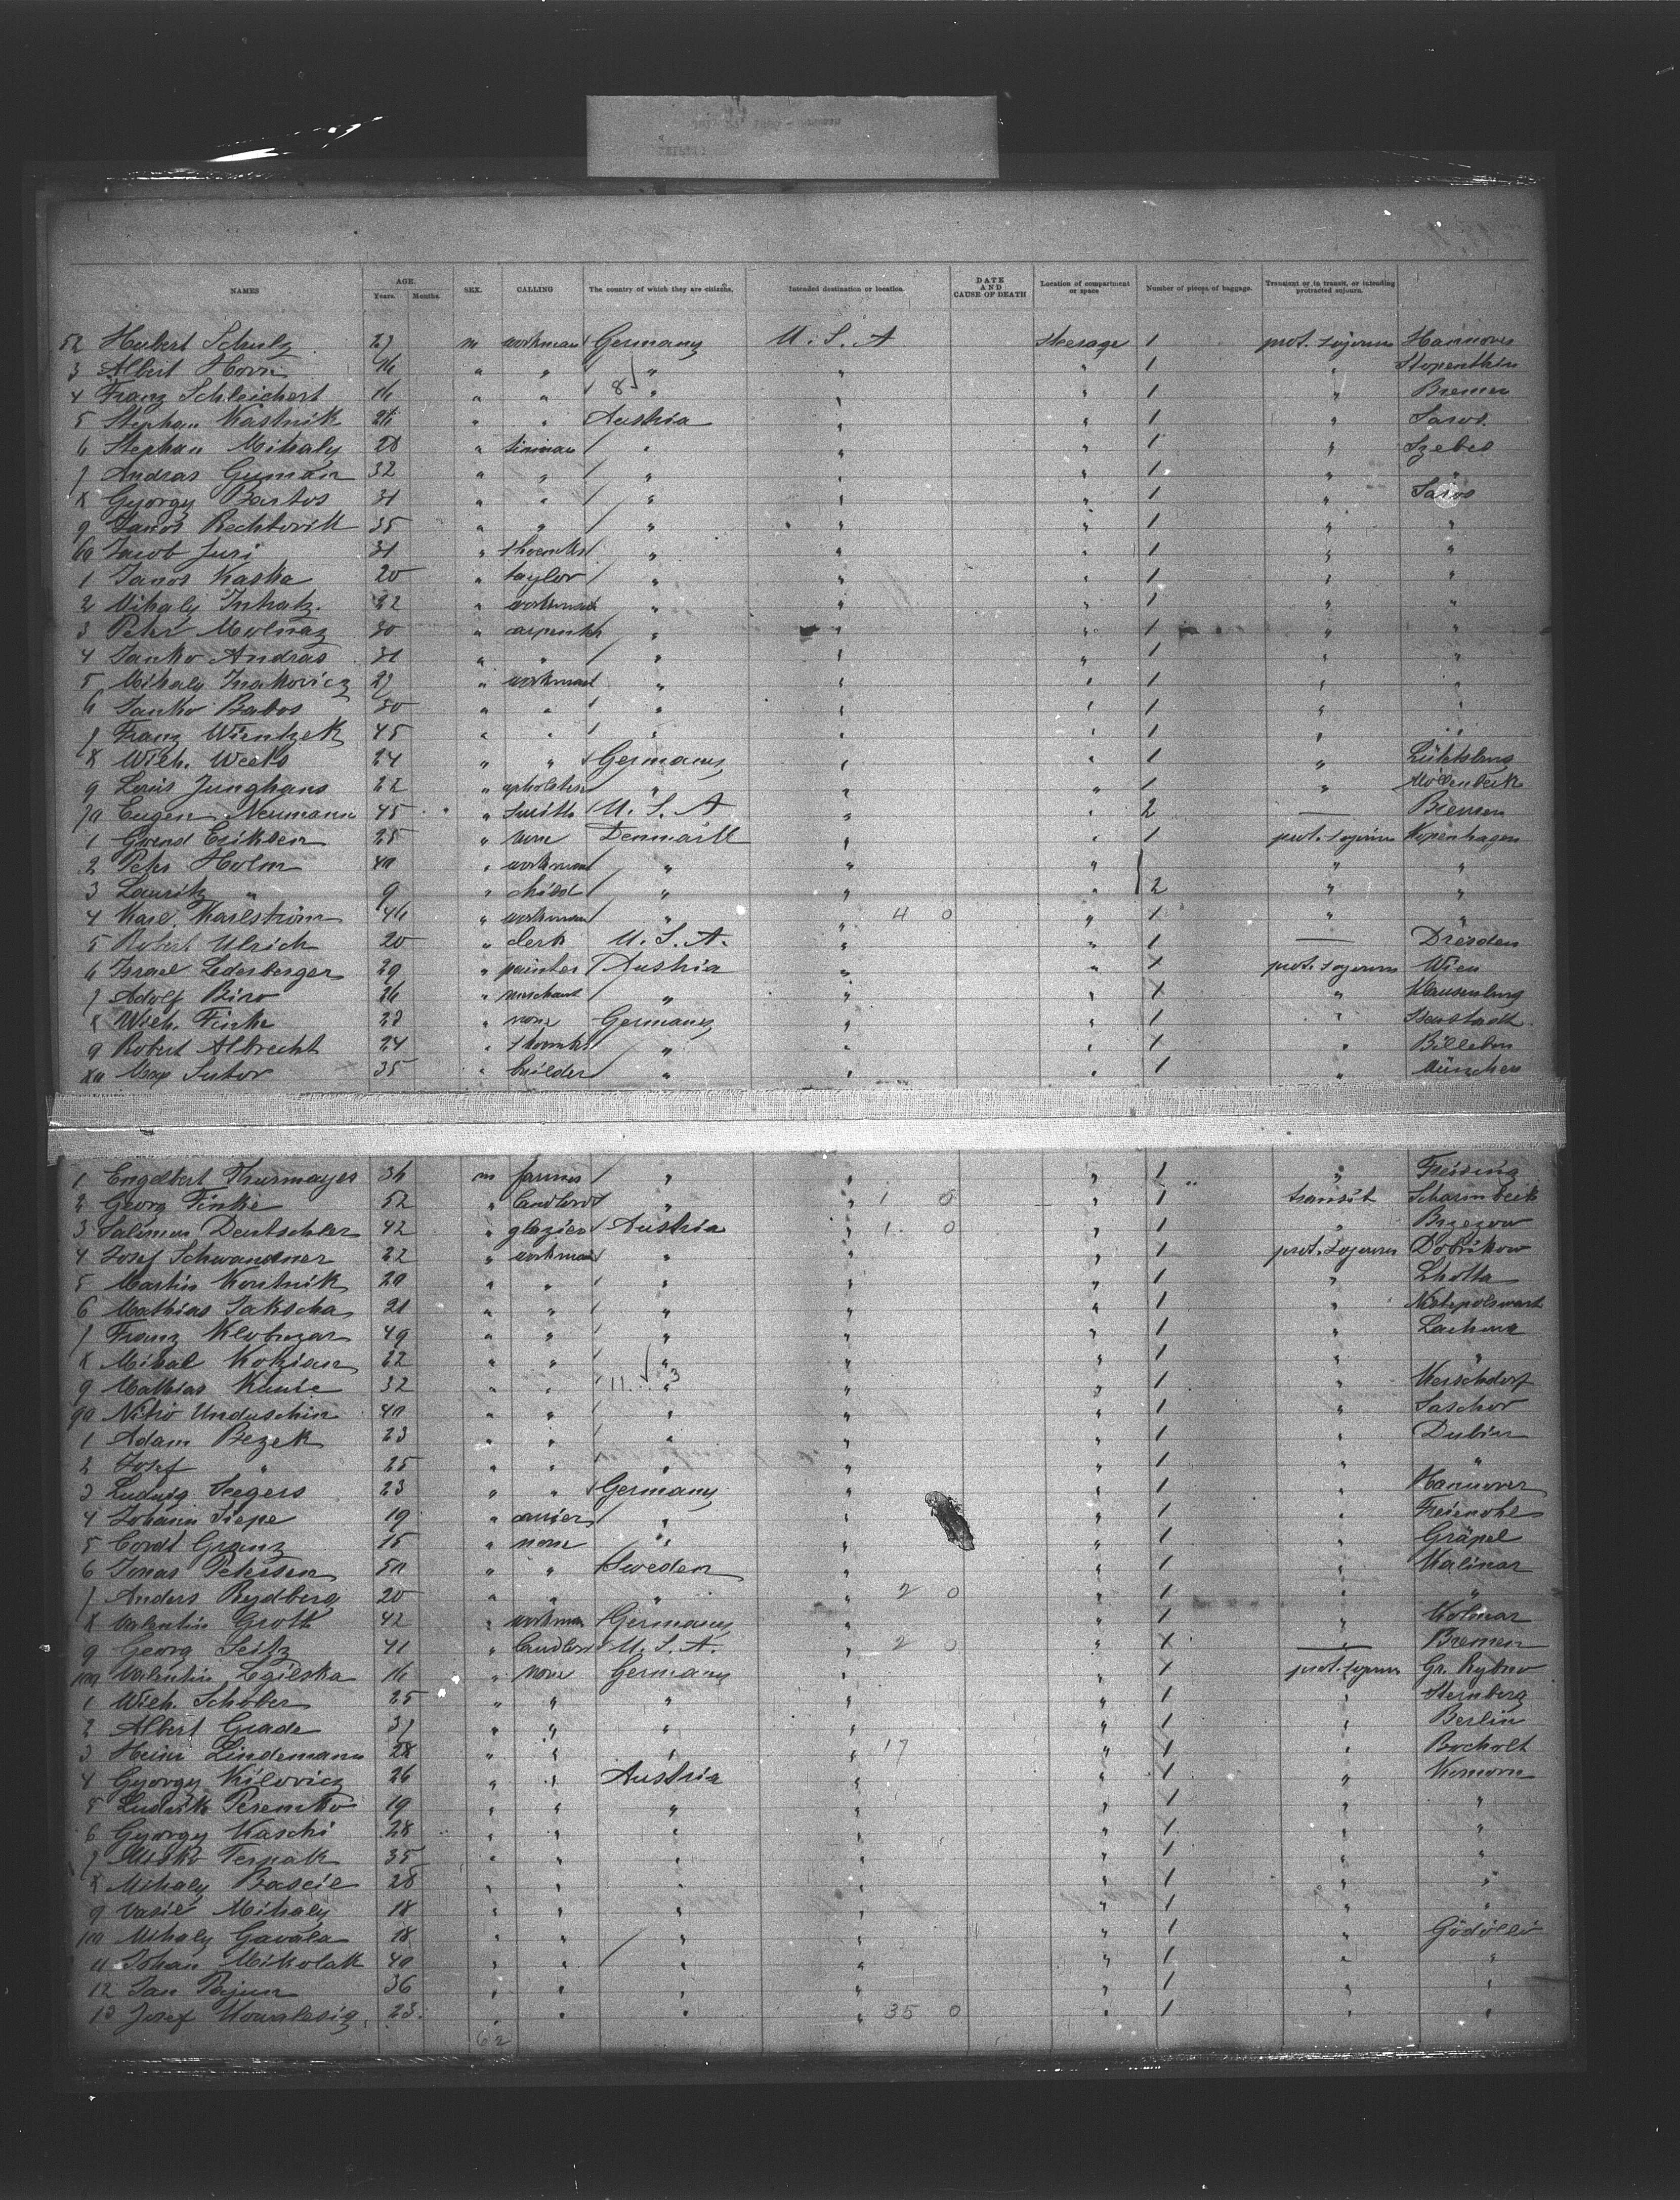 NAMES AGE. Years. Months. SEX. CALLING The country of which they are citizens. Intended destination or location. DATE AND CAUSE OF DEATH Location of compartment or space Number of pieces of baggage. Transient or in transit, or intending protracted sojourn.
52 Hubert Schulz 27 m workman Germany U. S. A steerage 1 prot. sojourn Hannover
3 Albert Horn 26 " " " " " 1 " Stepenthin
4 Franz Schleichert 16 " " 8 " " " 1 " Bremen
5 Stephan Kastnik 26 " " Austria " " 1 " Saros
6 Stephan Mihaly 28 " " " " 1 " Szebes
7 Andras Guman 32 " " " " " 1 " "
8 Gyorgy Bartos 31 " " " " " 1 " Saros
9 Janos Rechtovik 35 " " " " " 1 " "
60 Jacob Juri 31 " shoemkr " " " 1 " "
1 Janos Kaska 20 " taylor " " " 1 " "
2 Mihaly 22 " workman " " " 1 " "
3 Peter Molnaz 30 " carpenter " " " 1 " "
4 Janko Andras 31 " " " " " 1 " "
5 Mihaly 27 " workman " " " 1 " "
6 Janko Babos 30 " " " " " 1 " "
7 Franz Wientzek 45 " " " " " 1 " "
8 Wilh. Weeks 24 " " Germany " " 1 "
9 Louis Junghans 22 " upholster " " " 1 " Möllenbeck
70 Eugen Neumann 45 " smith U. S. A " " 2 — Bremen
1 Eriksen 25 " none Denmark " " 1 prot. sojourn Kopenhagen
2 Peter Holm 40 " workman " " " " "
3 Lauritz " 9 " child " " " 2 " "
4 Karl Karlström 46 " workman " " 4 0 " 1 " "
5 Robert Ulrich 20 " clerk U. S. A. " " 1 — Dresden
6 Israel Lederberger 29 " painter Austria " " 1 prot. sojourn Wien
7 Adolf Biro 26 " merchant " " " 1 " Klausenburg
8 Wilh. Finke 28 " none Germany " " 1 "
9 Robert Albrecht 24 " shoemkr " " " 1 " Billeben
80 Max Sutor 35 " builder " " " 1 " München
1 Engelbert Thurmayer 36 m farmer " " " 1 " Freising
2 Georg Finke 52 " landlord " " 1 0 " 1 transit Scharmbeck
3 Salomon Deutschler 42 " glazier Austria " 1 0 " 1 " Brzezow
4 Josef Schwandner 22 " workman " " " 1 prot. sojourn Dobrikow
5 Martin Kostnik 29 " " " " " 1 " Lhotta
6 Mathias Jakscha 21 " " " " " 1 "
7 Franz Klobuzar 49 " " " " " 1 "
8 Mihal Kozian 22 " " " " " 1 " "
9 Mathias Kunie 32 " " 11 3 " " " 1 " Kerschdorf
90 Unduschin 40 " " " " " 1 " Saschor
1 Adam Bezek 23 " " " " " 1 " Dubin
2 Josef " 25 " " " " " 1 " "
3 Ludwig Seegers 23 " " Germany " " 1 " Hannover
4 Johann Siepe 19 " " " " 1 " Freienohl
5 Cordt Granz 15 " none " " " 1 " Gräpel
6 Jonas Petersen 50 " " Sweden " " 1 " Kalmar
7 Anders Rydberg 20 " " " " 2 0 " 1 " "
8 Valentin Groth 42 " workman Germany " " 1 " Kolmar
9 Georg Seitz 41 " landlord U. S. A. " 2 0 " 1 — Bremen
100 Valentin Zgielska 16 " none Germany " 1 prot. sojourn Gr. Rybno
1 Wilh. Schober 25 " " " " " 1 " Sternberg
2 Albert Grade 37 " " " " " 1 " Berlin
3 Heinr Lindemann 28 " " " " 17 " 1 " Bocholt
4 Gyorgy Kilovicz 26 " " Austria " " 1 " Komorn
5 Ludwik Peremko 19 " " " " " 1 " "
6 Gyorgy Kaschi 28 " " " " " 1 " "
7 Misko Ternak 35 " " " " " 1 " "
8 Mihaly Bascie 28 " " " " " 1 " "
9 Vasil Mihaly 18 " " " " " 1 " "
110 Mihaly Gavala 18 " " " " " 1 " Gödöllö
11 Johan Mikolak 40 " " " " " 1 " "
12 Jan 36 " " " " " 1 " "
13 Josef Kowalesig 23 " " " " 35 0 " 1 " "
62